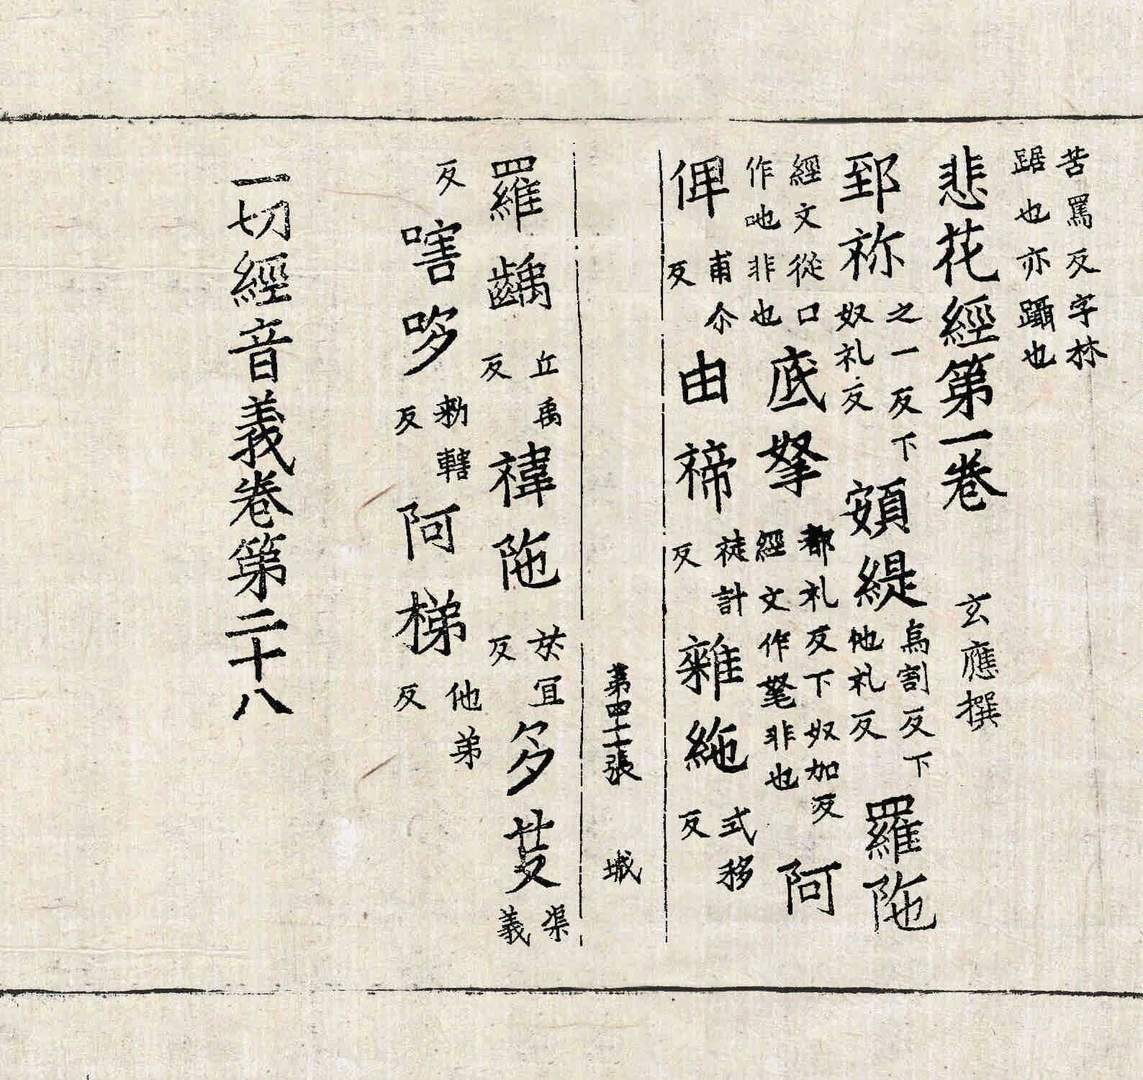 苦罵反字林
踞也亦躡也
悲花經第一卷 玄應撰
郅祢 之一反下奴礼反 頞緹 烏割反下他礼反 羅陁
經文從口作咃非也 底拏 都礼反下奴加反經文作毣非也 阿
俾 甫尒反 由褅 徒計反 雜絁 式移反
第四十二張 城
羅齲 丘禹反 禕陁 於宜反 多芰 渠義
反 㗿哆 勑轄反 阿梯 他弟反
一切經音義卷第二十八